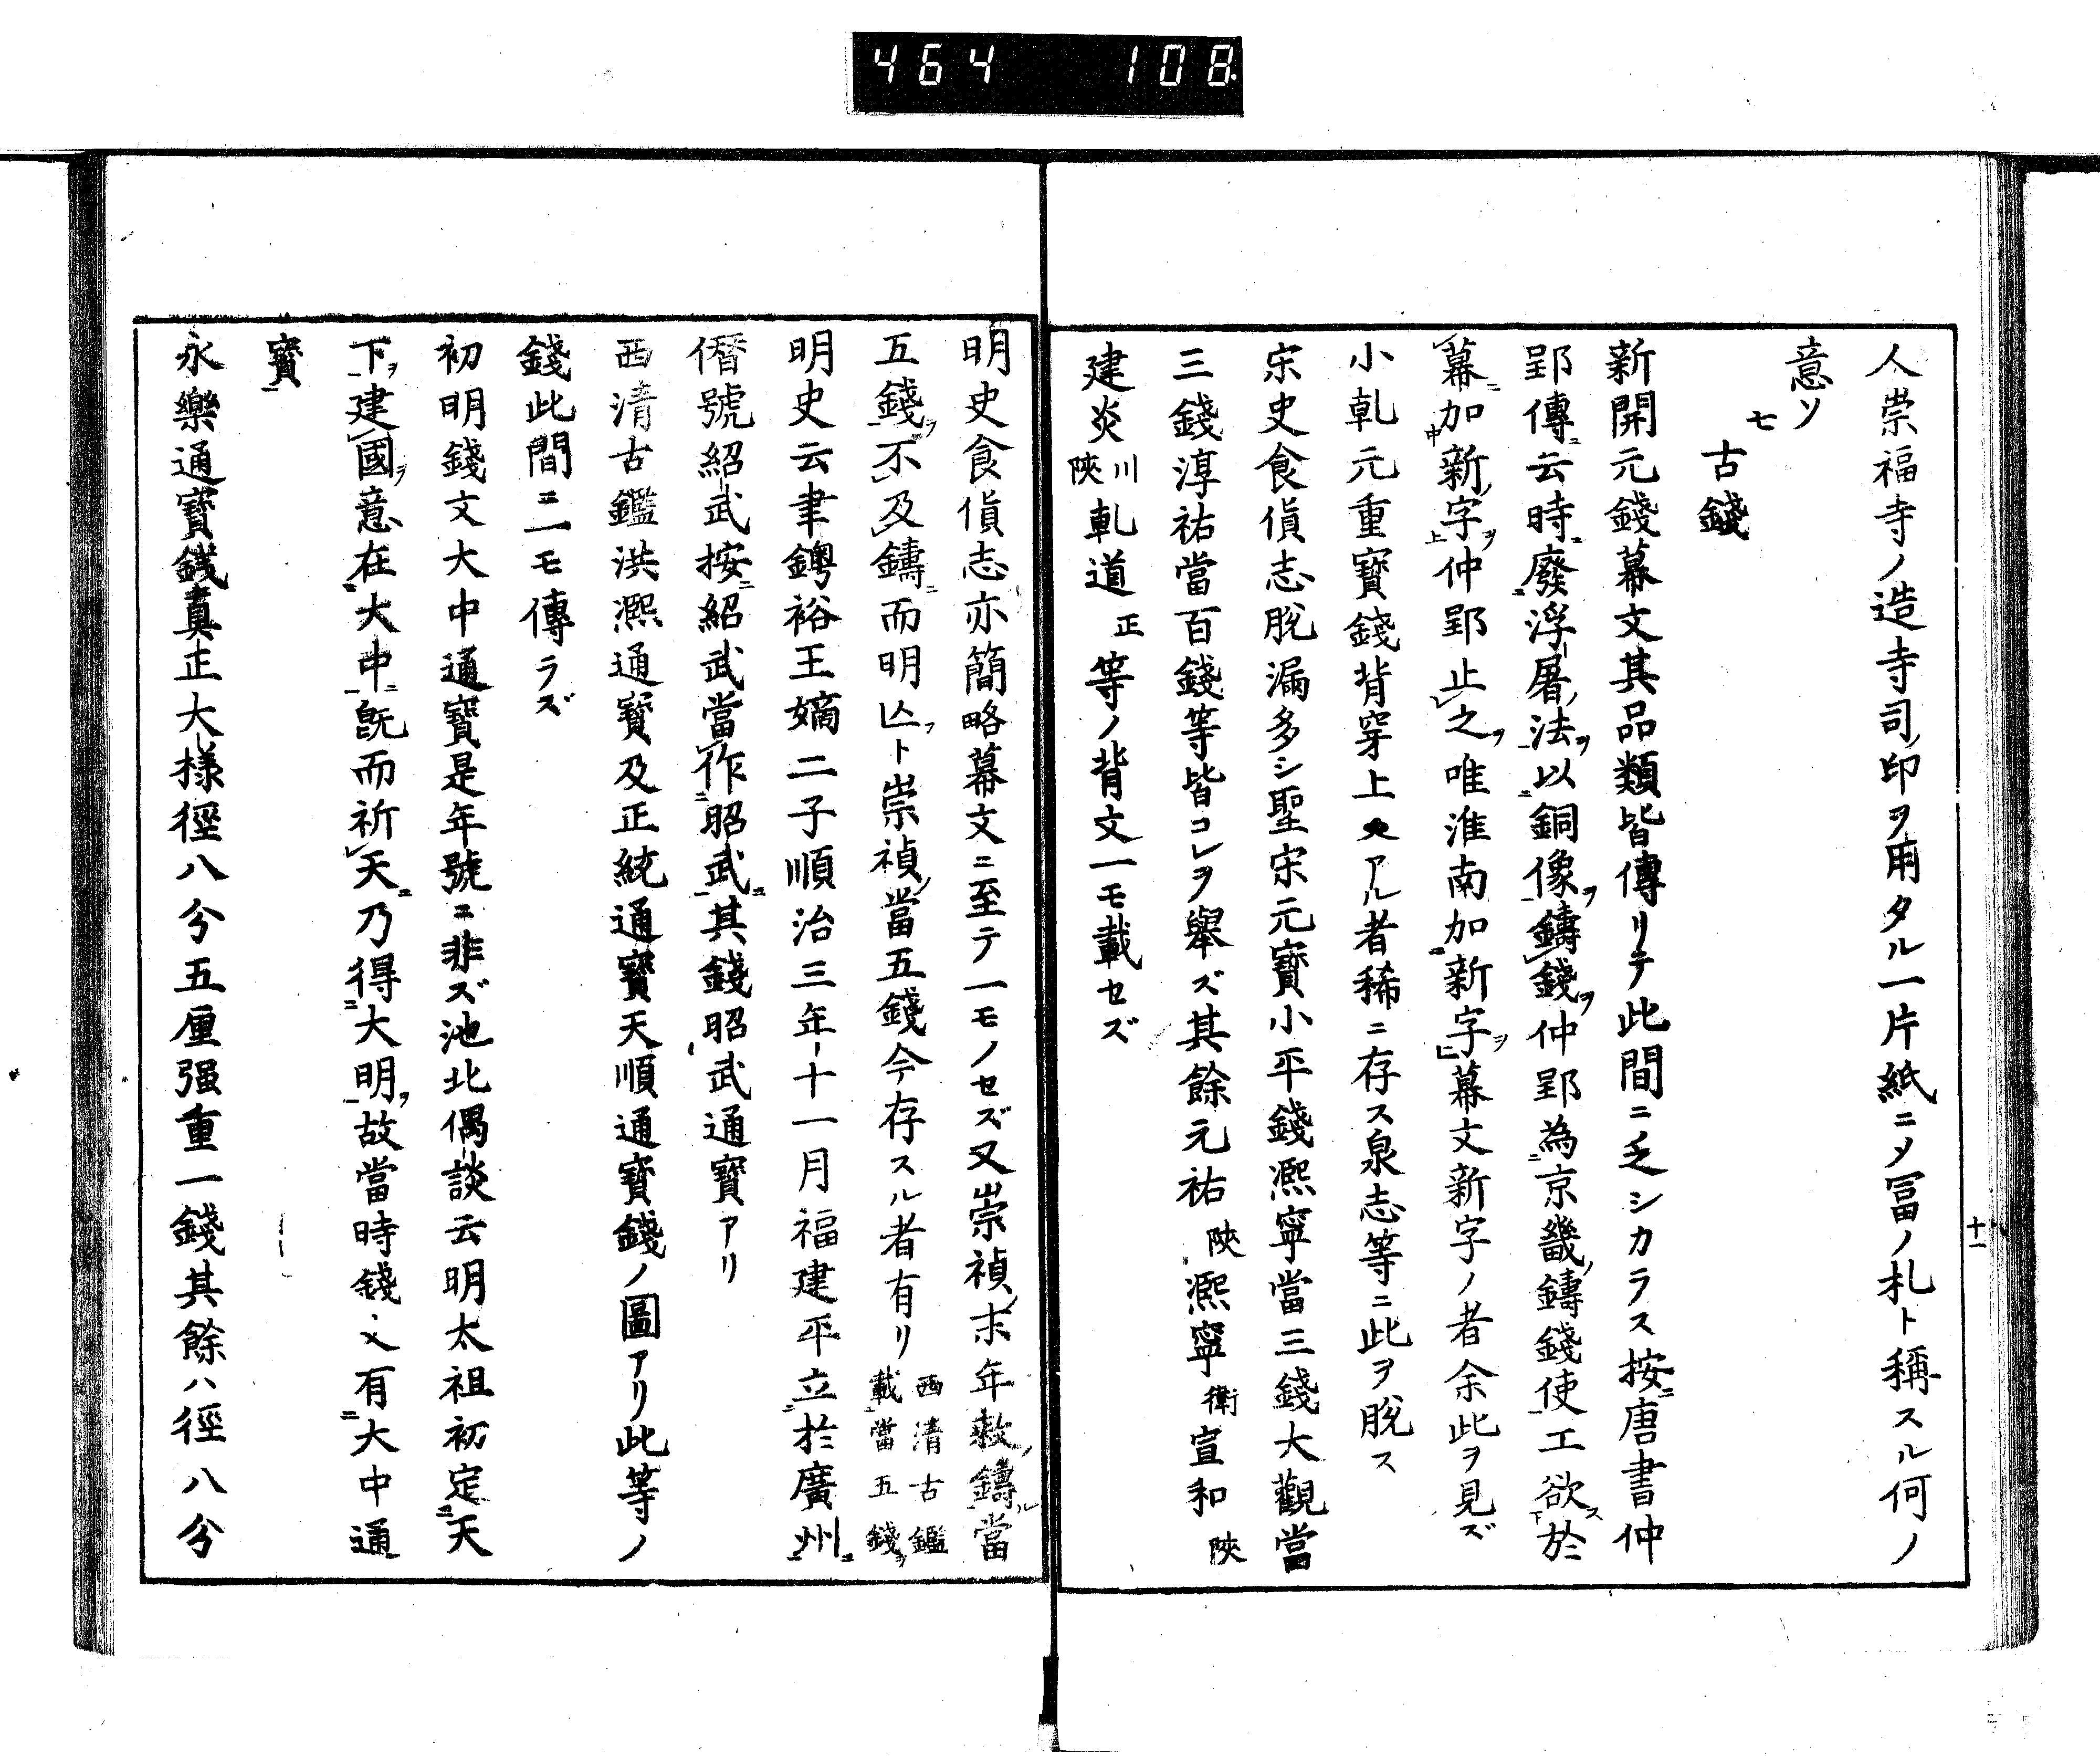 464 108
十一
人崇福寺ノ造寺司印ヲ用タル一片紙ニノ冨ノ札ト稱スル何ノ
意ソ
七
古錢
新開元錢幕文其品類皆傳リテ此間ニ乏シカラス按唐書仲
郢傳云時廢浮屠法以銅像鑄錢仲郢為京畿鑄錢使工欲於
幕加新字仲郢止之唯淮南加新字幕文新字ノ者余此ヲ見ズ
小乹元重寶錢背穿上アル者稀ニ存ス泉志等ニ此ヲ脫ス
宋史食貨志脫漏多シ聖宋元寶小平錢熈寧當三錢大觀當
三錢淳祐當百錢等皆コレヲ舉ズ其餘元祐陝熈寧衛宣和陝
建炎川陝乹道正等ノ背文一モ載セズ
明史食貨志亦簡略幕文ニ至テ一モノセズ又崇禎末年敕鑄當
五錢不及鑄而明亾ト崇禎當五錢今存スル者有リ西清古鑑載當五錢
明史云聿鐭裕王嫡二子順治三年十一月福建平立於廣州
僭號紹武按紹武當作昭武其錢昭武通寶アリ
西清古鑑洪熈通寶及正統通寶天順通寶錢ノ圖アリ此等ノ
錢此間ニ一モ傳ラズ
初明錢文大中通寶是年號ニ非ズ池北偶談云明太祖初定天
下建國意在大中既而祈天乃得大明故當時錢文有大中通
寶
永樂通寶錢真正大樣徑八分五厘强重一錢其餘ハ徑八分